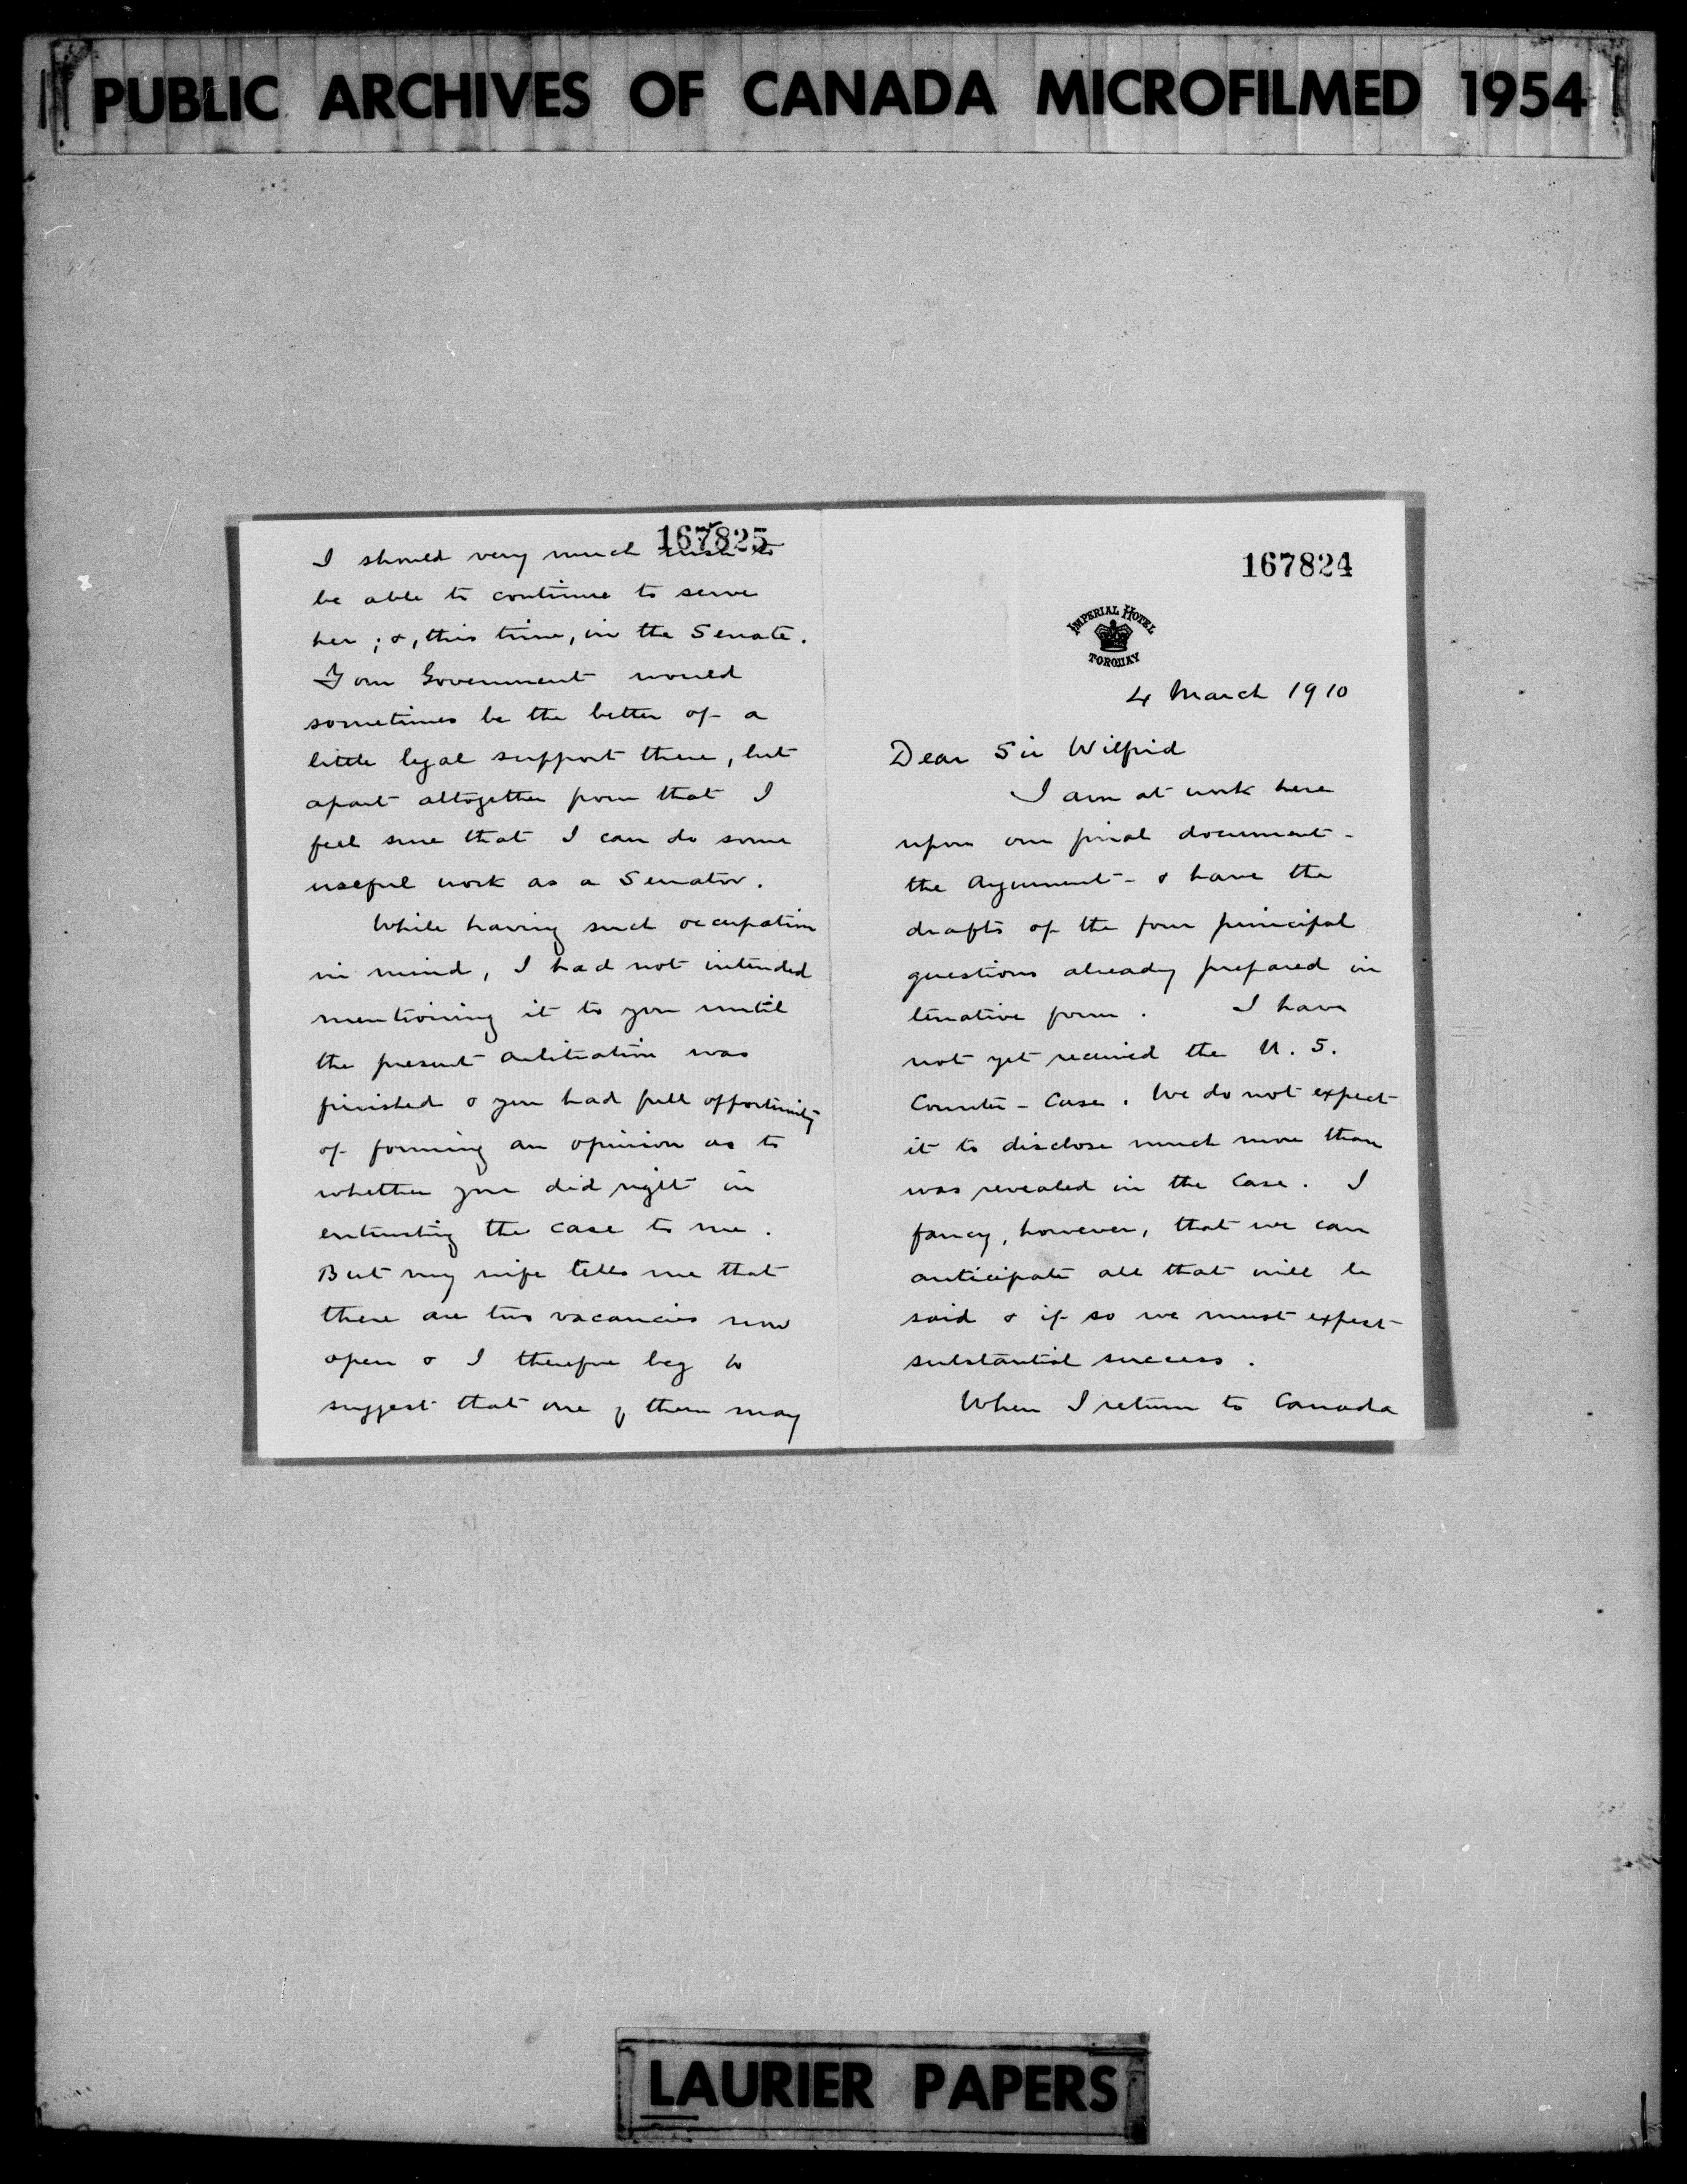 PUBLIC ARCHIVES OF CANADA MICROFILMED 1954
167824
IMPERIAL HOTEL
TORQUAY
4 March 1910
Dear Sir Wilfrid
I am at work here
upon our final document -
the Argument - & have the
drafts of the four principal
questions already prepared in
tenative form. I have
not yet received the U.S.
Counter-Case. We do not expect
it to disclose much more than
was revealed in the Case. I
fancy, however, that we can
anticipate all that will be
said & if so we must expect
substantial success.
When I return to Canada
167825
I should very much wish to
be able to continue to serve
her; &, this time, in the Senate.
Your Government would
sometimes be the better of a
little legal support there, but
apart altogether from that I
feel sure that I can do some
useful work as a Senator.
While having such occupation
in mind, I had not intended
mentioning it to you until
the present arbitration was
finished & you had full opportunity
of forming an opinion as to
whether you did right in
entrusting the case to me.
But my wife tells me that
there are two vacancies now
open & I therefore beg to
suggest that one of them may
LAURIER PAPERS